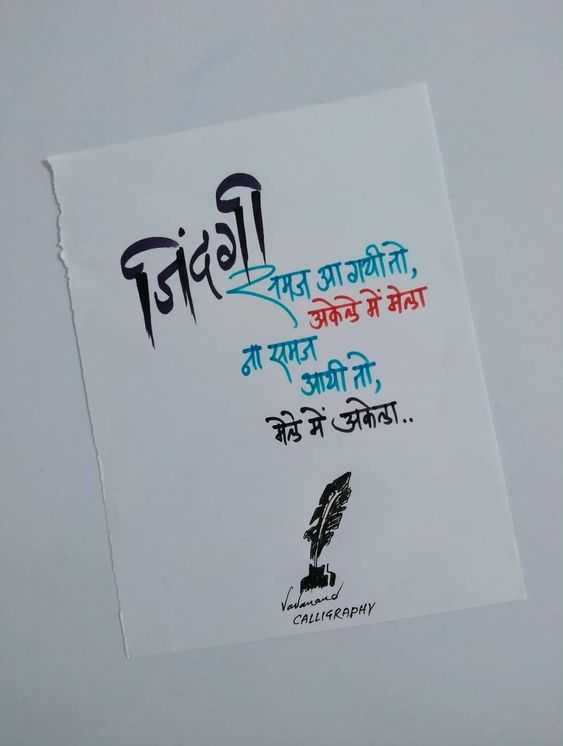 जिंदगी
समज आ गयी तो,
अकेले में मेला
ना समज
आयी तो,
मेले में अकेला..
CALLIGRAPHY